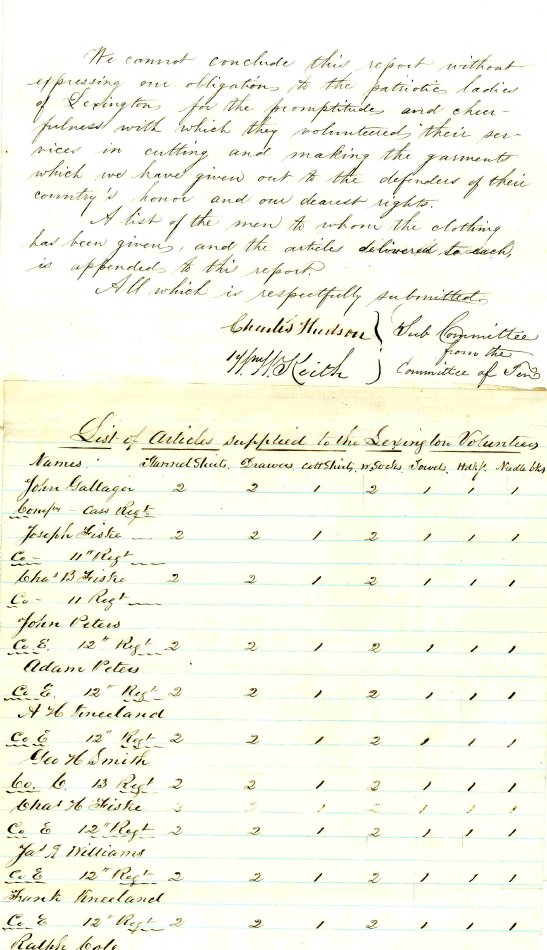 We cannot conclude this report without
expressing our obligation to the patriotic ladies
of Lexington, for the promptitude and cheer-
fulness with which they volunteered their ser-
vices in cutting and making the garments
which we have given out to the defenders of their
country's honor and our dearest rights.
A list of the men to whom the clothing
has been given, and the articles delivered to each,
is appended to this report.
All which is respectfully submitted.
Charles Hudson } Sub Committee
from the
Keith } Committee of Ten
List of Articles supplied to the Lexington Volunteers
Names. Flannel Shirts. Drawers Cott Shirts, Socks Towel. Hdkf. Needle bks
John Gallager 2 2 1 2 1 1 1
Compy - Cass Regt
Joseph Fiske 2 2 1 2 1 1 1
Co - 11" Regt
Chas B Fiske 2 2 1 2 1 1 1
Co - 11 Regt
John Peters
Co E. 12" Regt 2 2 1 2 1 1 1
Adam Peters
Co E. 12" Regt 2 2 1 2 1 1 1
A H Kneeland
Co E 12" Regt 2 2 1 2 1 1 1
Geo H Smith
Co. C. 13 Regt 2 2 1 2 1 1 1
Chas H Fiske 2 2 1 2 1 1 1
Co E 12" Regt 2 2 1 2 1 1 1
Jas G Williams
Co E 12" Regt 2 2 1 2 1 1 1
Frank Kneeland
Co E 12" Regt 2 2 1 2 1 1 1
Ralph Cole